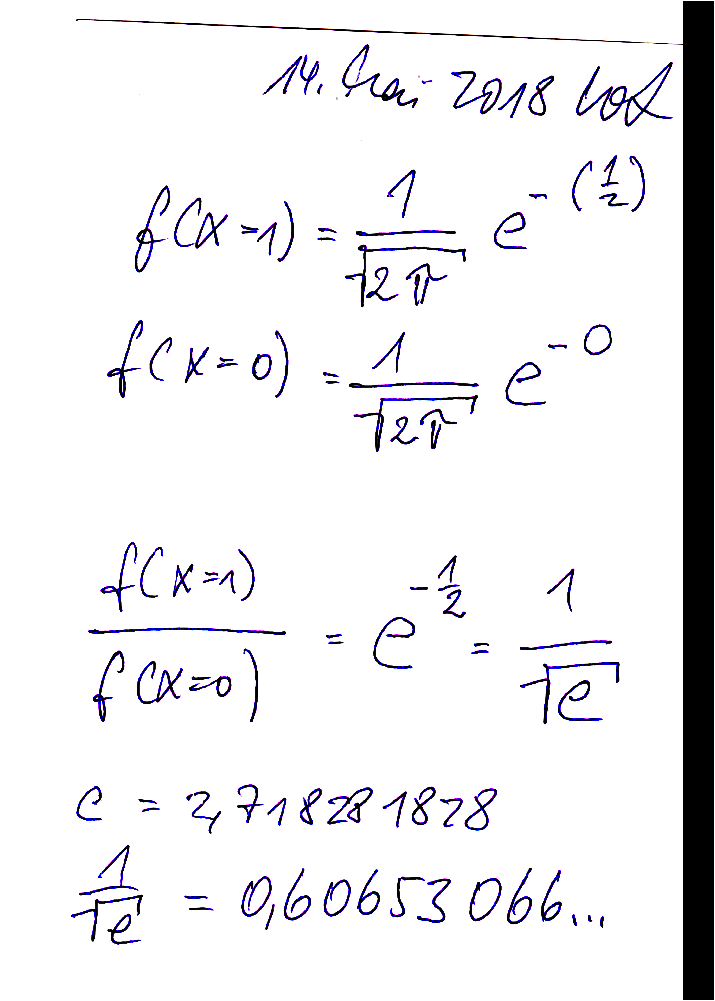 14. Mai 2018
f(x=1) = 1/√2π e^-(1/2)
f(x=0) = 1/√2π e^-0
f(x=1)/f(x=0) = e^-1/2 = 1/√e
e = 2,718281828
1/√e = 0,60653066...